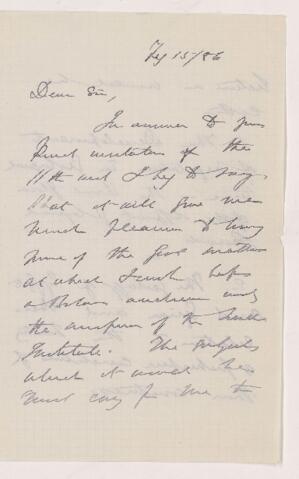 Fy 15/86
Dear Sir,
In answer to your
kind invitation of the
11th inst I beg to say
that it will give me
much pleasure to
some of the
at which I
a Boston audience under
the auspices of the
Institute. The subjects
which it would be
most easy for me to